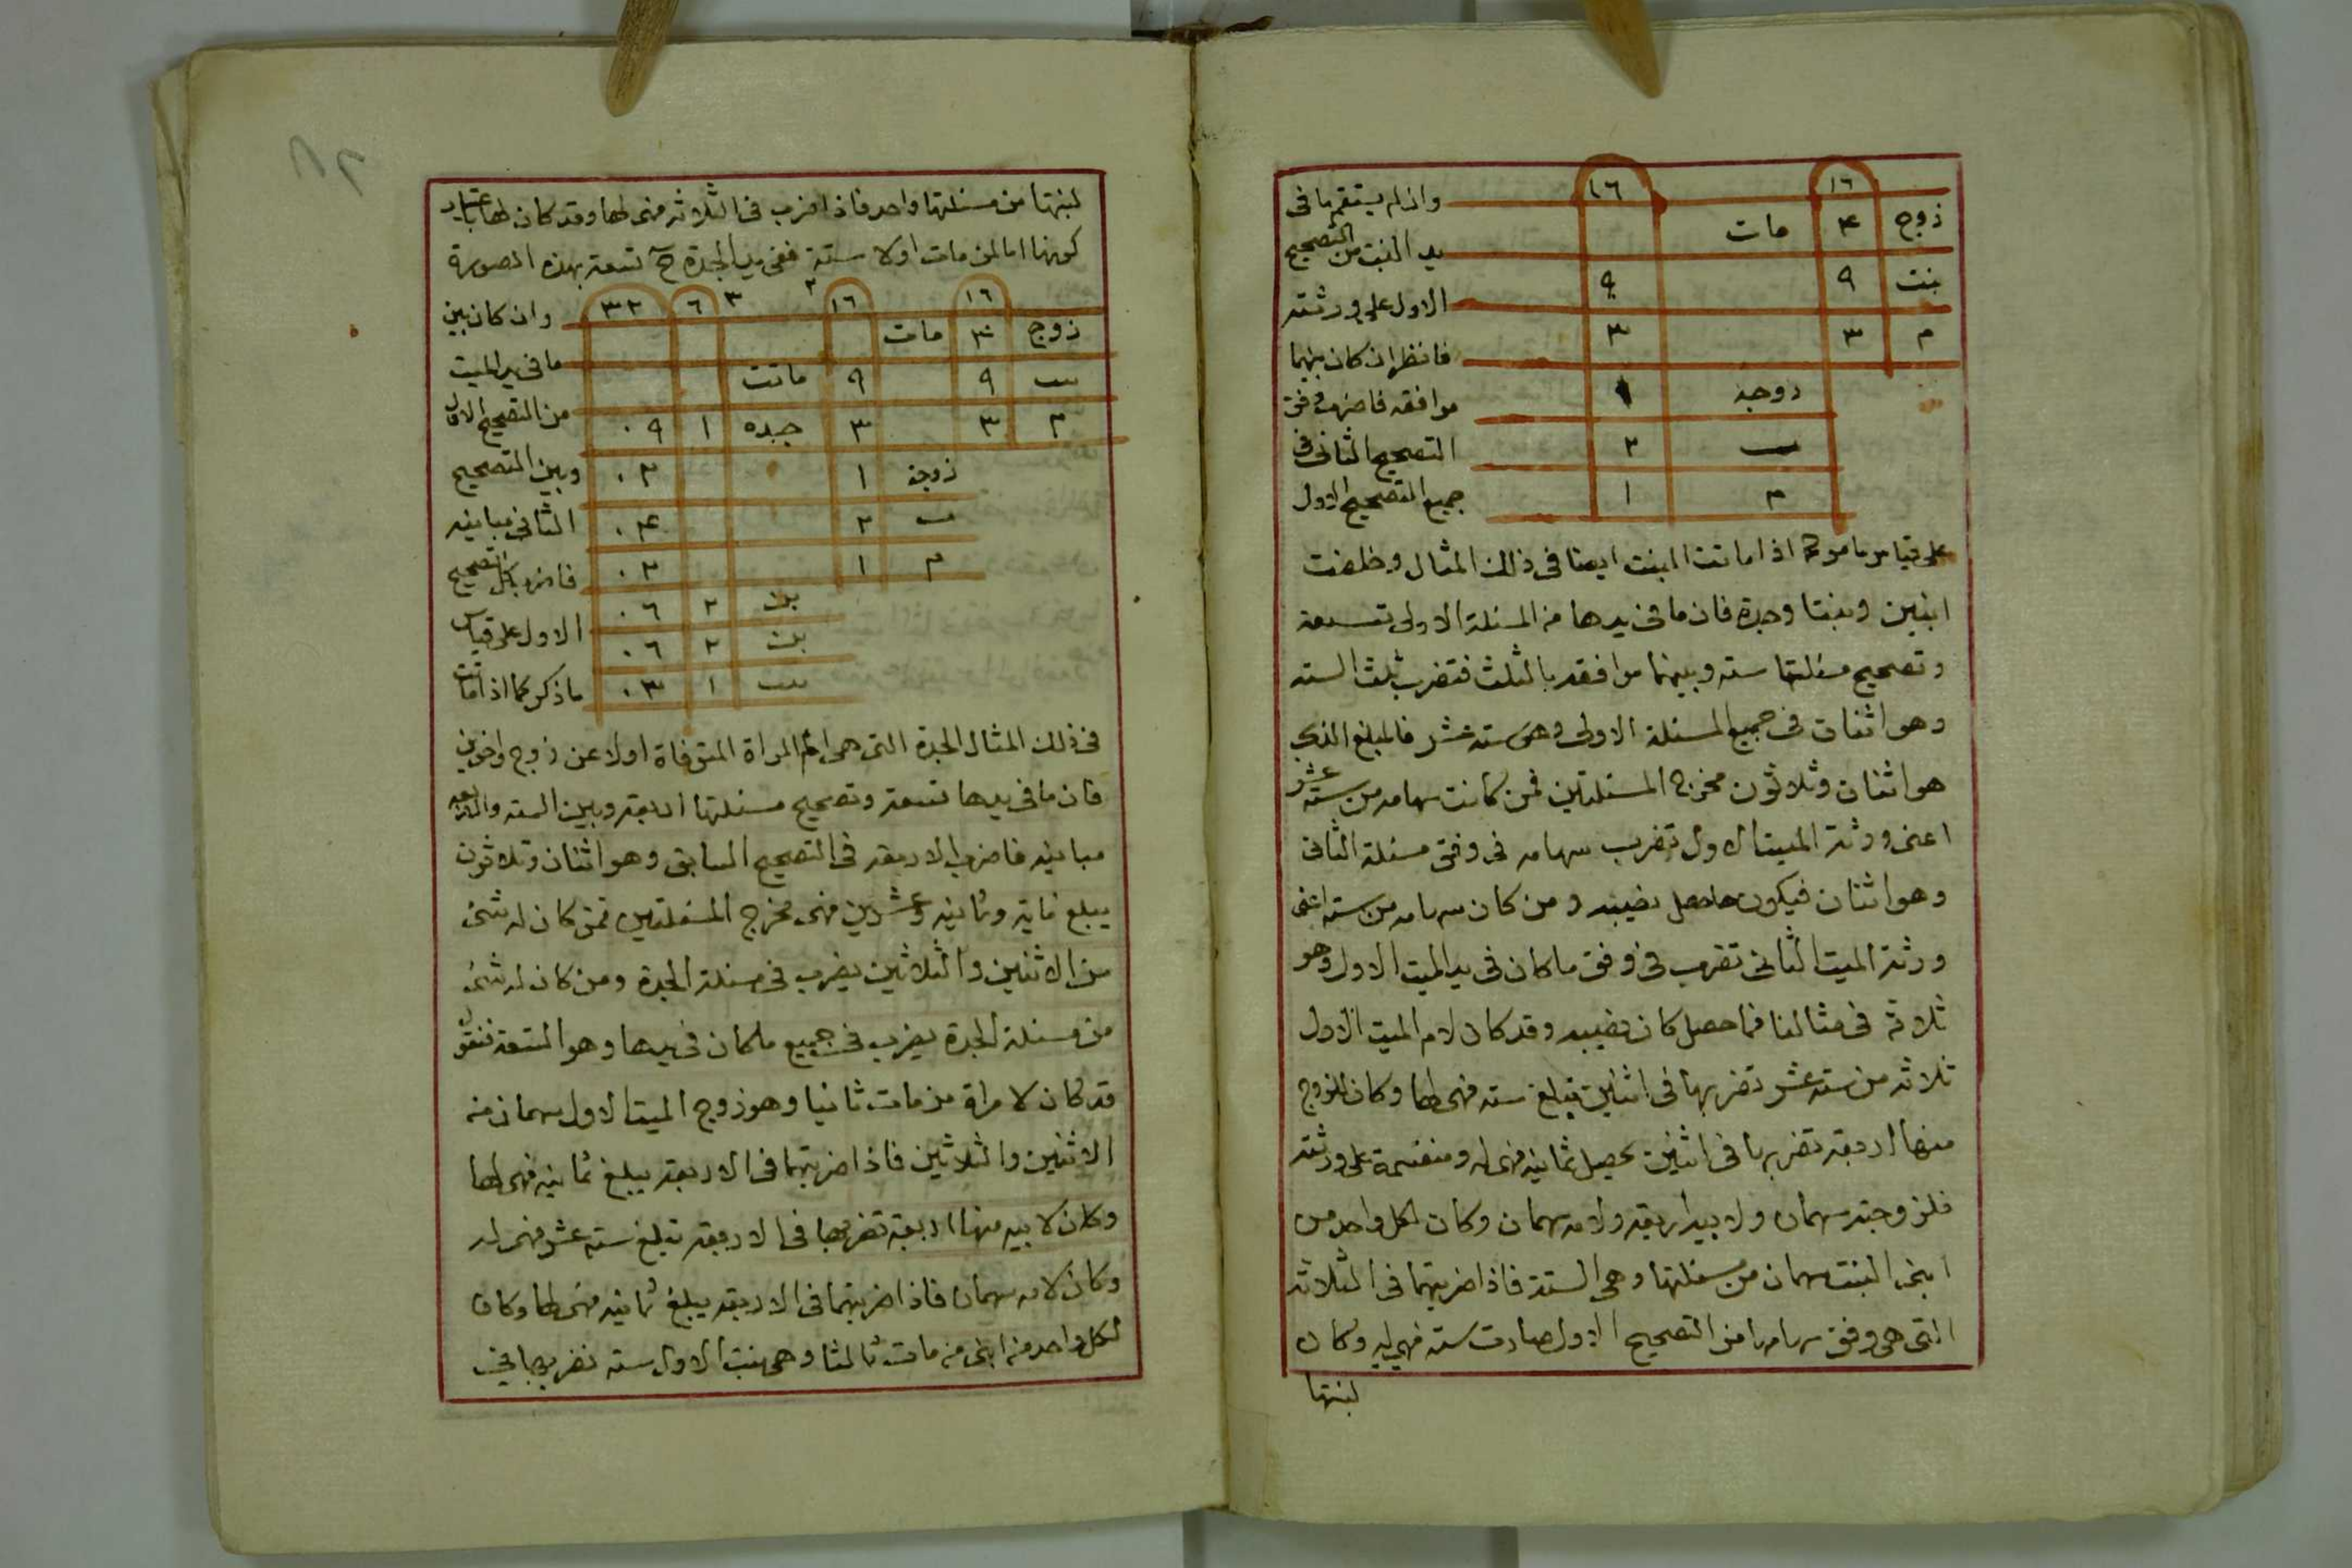 ١٦ ١٦ وان لم يستقم ما فى
زوج ٤ مات
يد البنت من التصحيح
بنت ٩ ٩
الاول على ورثته
م ٣ ٣
فانظر ان كان بينهما
زوجة ١
موافقه فاضرب وفق
ب ٢
التصحيح الثانى فى
م ١
جميع التصحيح الاول
على قياس ما مر كما اذا ماتت البنت ايضا فى ذلك المثال وخلفت
ابنين وبنتا وجدة فان ما فى يدها من المسئلة الاولى تسعة
وتصحيح مسئلتها سته وبينهما موافقه بالثلث فتضرب ثلث السته
وهو اثنان فى جميع المسئلة الاولى وهى سته عشر فالمبلغ الذى
هو اثنان وثلاثون مخرج المسئلتين فمن كانت سهامه من سته عشر
اعنى ورثة الميت الاول تضرب سهامه فى وفق مسئلة الثانى
وهو اثنان فيكون ما حصل نصيبه ومن كان سهامه من سته اعنى
ورثة الميت الثانى تضرب فى وفق ما كان فى يد الميت الاول وهو
ثلاثة فى مثالنا فما حصل كان نصيبه وقد كان لام الميت الاول
ثلاثه من سته عشر تضربها فى اثنين يبلغ سته فهى لها وكان للزوج
منها اربعة تضربها فى اثنين يحصل ثمانيه فهى له ومنقسمة على ورثته
فلزوجته سهمان ولابيه اربعه ولامه سهمان وكان لكل واحد من
ابنى البنت سهمان من مسئلتها وهى الستة فاذا ضربتهما فى الثلاثه
التى هى وفق سهامها من التصحيح الاول صارت سته فهى له وكان
لبنتها
لبنتها من مسئلتها واحد فاذا ضرب فى الثلاثه فهى لها وقد كان لها باعتبار
كونها اما لمن مات اولا ستة ففى يد الجدة ح تسعة بهذه الصورة
١٦ ١٦ ٢ ٣ ٦ ٣٢ وان كان بين
زوج ٤ مات
ما فى يد الميت
ب ٩ ٩ ماتت
من التصحيح الاول
م ٣ ٣ جده ١ ٠٩
وبين التصحيح
زوجة ١ ٠٢
الثانى مباينه
ب ٢ ٠٤
فاضرب كل التصحيح
م ١ ٠٢
بن ٢ ٠٦
الاول على قياس
بن ٢ ٠٦
ما ذكر كما اذا ماتت
بنت ١ ٠٣
فى ذلك المثال الجدة التى هى ام المراة المتوفاة اولا عن زوج واخوين
فان ما فى يدها تسعة وتصحيح مسئلتها اربعه وبين السته والاربعه
مباينه فاضرب الاربعه فى التصحيح السابق وهو اثنان وثلاثون
يبلغ مايه وثمانيه وعشرين فهى مخرج المسئلتين فمن كان له شئ
من الاثنين والثلاثين يضرب فى مسئلة الجدة ومن كان له شئ
من مسئلة الجدة يضرب فى جميع ما كان فى يدها وهو التسعة فنقول
قد كان لامراة من مات ثانيا وهو زوج الميت الاول سهمان من
الاثنين والثلاثين فاذا ضربتهما فى الاربعه يبلغ ثمانيه فهى لها
وكان لابيه منها اربعة تضربها فى الاربعه تبلغ سته عشر فهى له
وكان لامه سهمان فاذا ضربتهما فى الاربعه يبلغ ثمانيه فهى لها وكان
لكل واحد من ابنى من مات ثالثا وهى بنت الاول سته نضربها فى